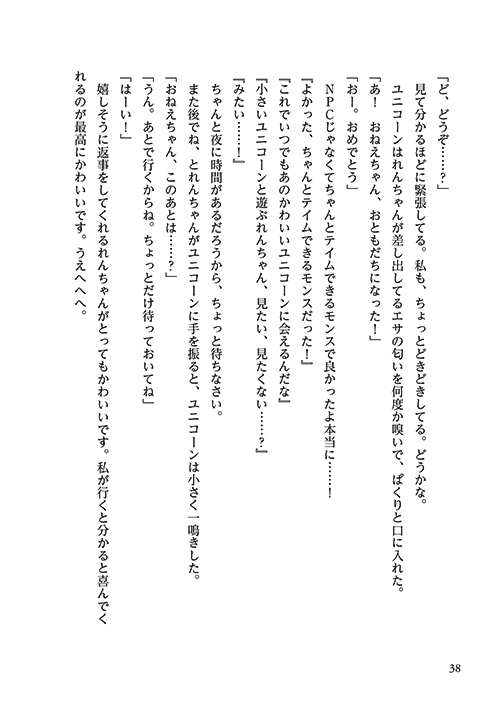 「ど、どうぞ……？」
　見て分かるほどに緊張してる。私も、ちょっとどきどきしてる。どうかな。
　ユニコーンはれんちゃんが差し出してるエサの匂いを何度か嗅いで、ぱくりと口に入れた。
「あ！　おねえちゃん、おともだちになった！」
「おー。おめでとう」
　ＮＰＣじゃなくてちゃんとテイムできるモンスで良かったよ本当に……！
『よかった、ちゃんとテイムできるモンスだった！』
『これでいつでもあのかわいいユニコーンに会えるんだな』
『小さいユニコーンと遊ぶれんちゃん、見たい、見たくない……？』
『みたい……！』
　ちゃんと夜に時間があるだろうから、ちょっと待ちなさい。
　また後でね、とれんちゃんがユニコーンに手を振ると、ユニコーンは小さく一鳴きした。
「おねえちゃん、このあとは……？」
「うん。あとで行くからね。ちょっとだけ待っておいてね」
「はーい！」
　嬉しそうに返事をしてくれるれんちゃんがとってもかわいいです。私が行くと分かると喜んでく
れるのが最高にかわいいです。うえへへへ。
38